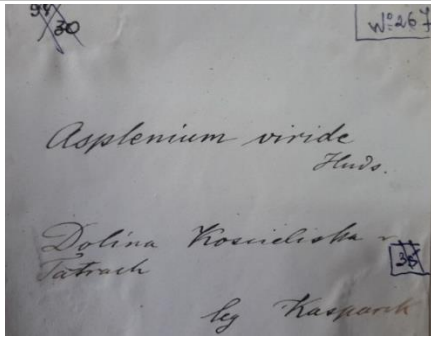 30
No 267
Asplenium viride
Huds.
Dolina Kościeliska w
Tatrach
38
leg Kasparek